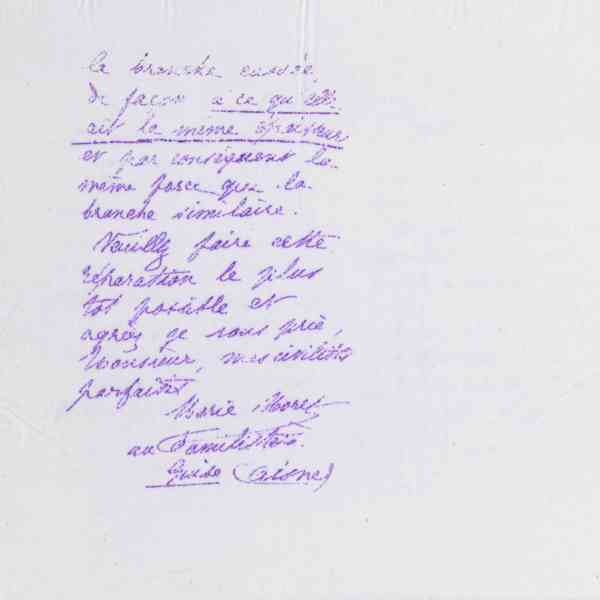 la branche cassée,
de façon à ce qu'elle
ait la même épaisseur
et par conséquent la
même force que la
branche similaire.
Veuillez faire cette
réparation le plus
tôt possible et
agréez je vous prie,
Monsieur, mes civilités
parfaites
Marie Moret
au Familistère.
Guise (Aisne)